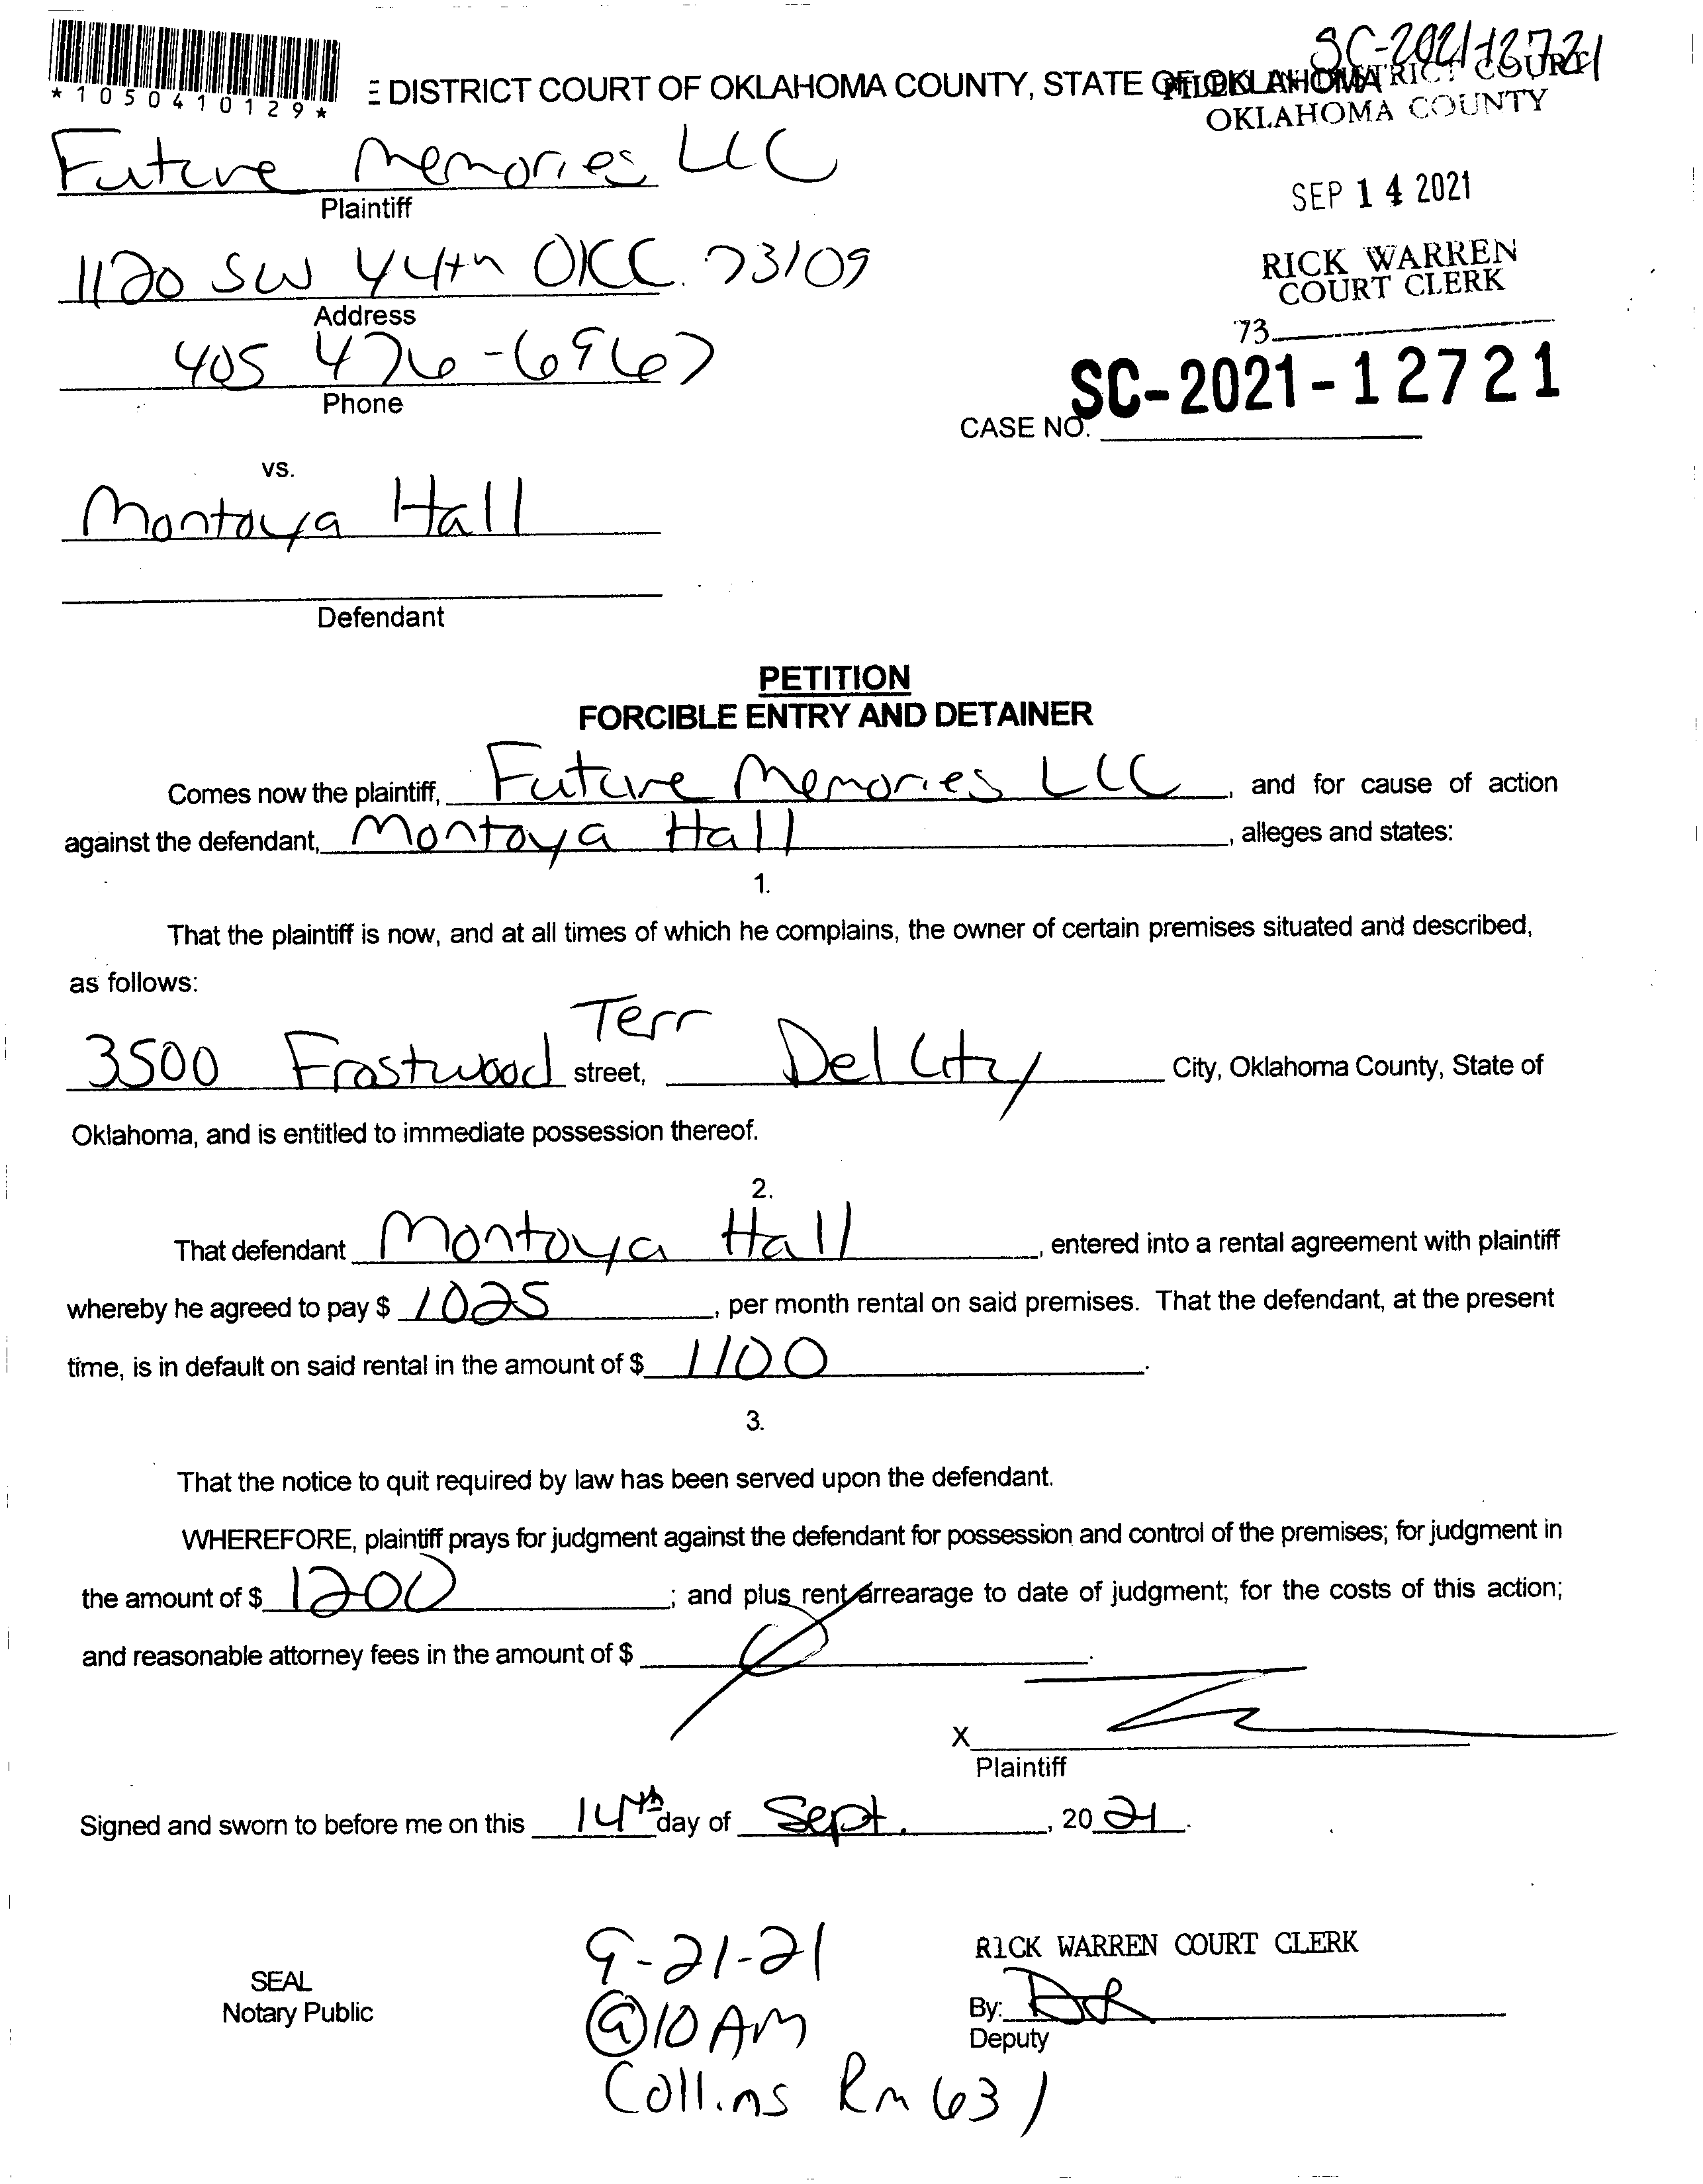 SC-2021-12721
*1050410129*
E DISTRICT COURT OF OKLAHOMA COUNTY, STATE OF OKLAHOMA
FILED IN DISTRICT COURT
OKLAHOMA COUNTY
Future Memories LLC
Plaintiff
SEP 14 2021
1120 SW 44th OKC. 73109
Address
RICK WARREN
COURT CLERK
405 476-6967
Phone
73
SC-2021-12721
CASE NO.
vs.
Montoya Hall
Defendant
PETITION
FORCIBLE ENTRY AND DETAINER
Comes now the plaintiff, Future Memories LLC, and for cause of action
against the defendant, Montoya Hall, alleges and states:
1.
That the plaintiff is now, and at all times of which he complains, the owner of certain premises situated and described,
as follows:
Terr
3500 Frostwood street, Del City City, Oklahoma County, State of
Oklahoma, and is entitled to immediate possession thereof.
2.
That defendant Montoya Hall, entered into a rental agreement with plaintiff
whereby he agreed to pay $ 1025, per month rental on said premises. That the defendant, at the present
time, is in default on said rental in the amount of $ 1100.
3.
That the notice to quit required by law has been served upon the defendant.
WHEREFORE, plaintiff prays for judgment against the defendant for possession and control of the premises; for judgment in
the amount of $ 1200; and plus rent arrearage to date of judgment; for the costs of this action;
and reasonable attorney fees in the amount of $ 0.
X
Plaintiff
Signed and sworn to before me on this 14th day of Sept., 2021.
SEAL
Notary Public
9-21-21
@10AM
Collins Rm 631
RICK WARREN COURT CLERK
By:
Deputy